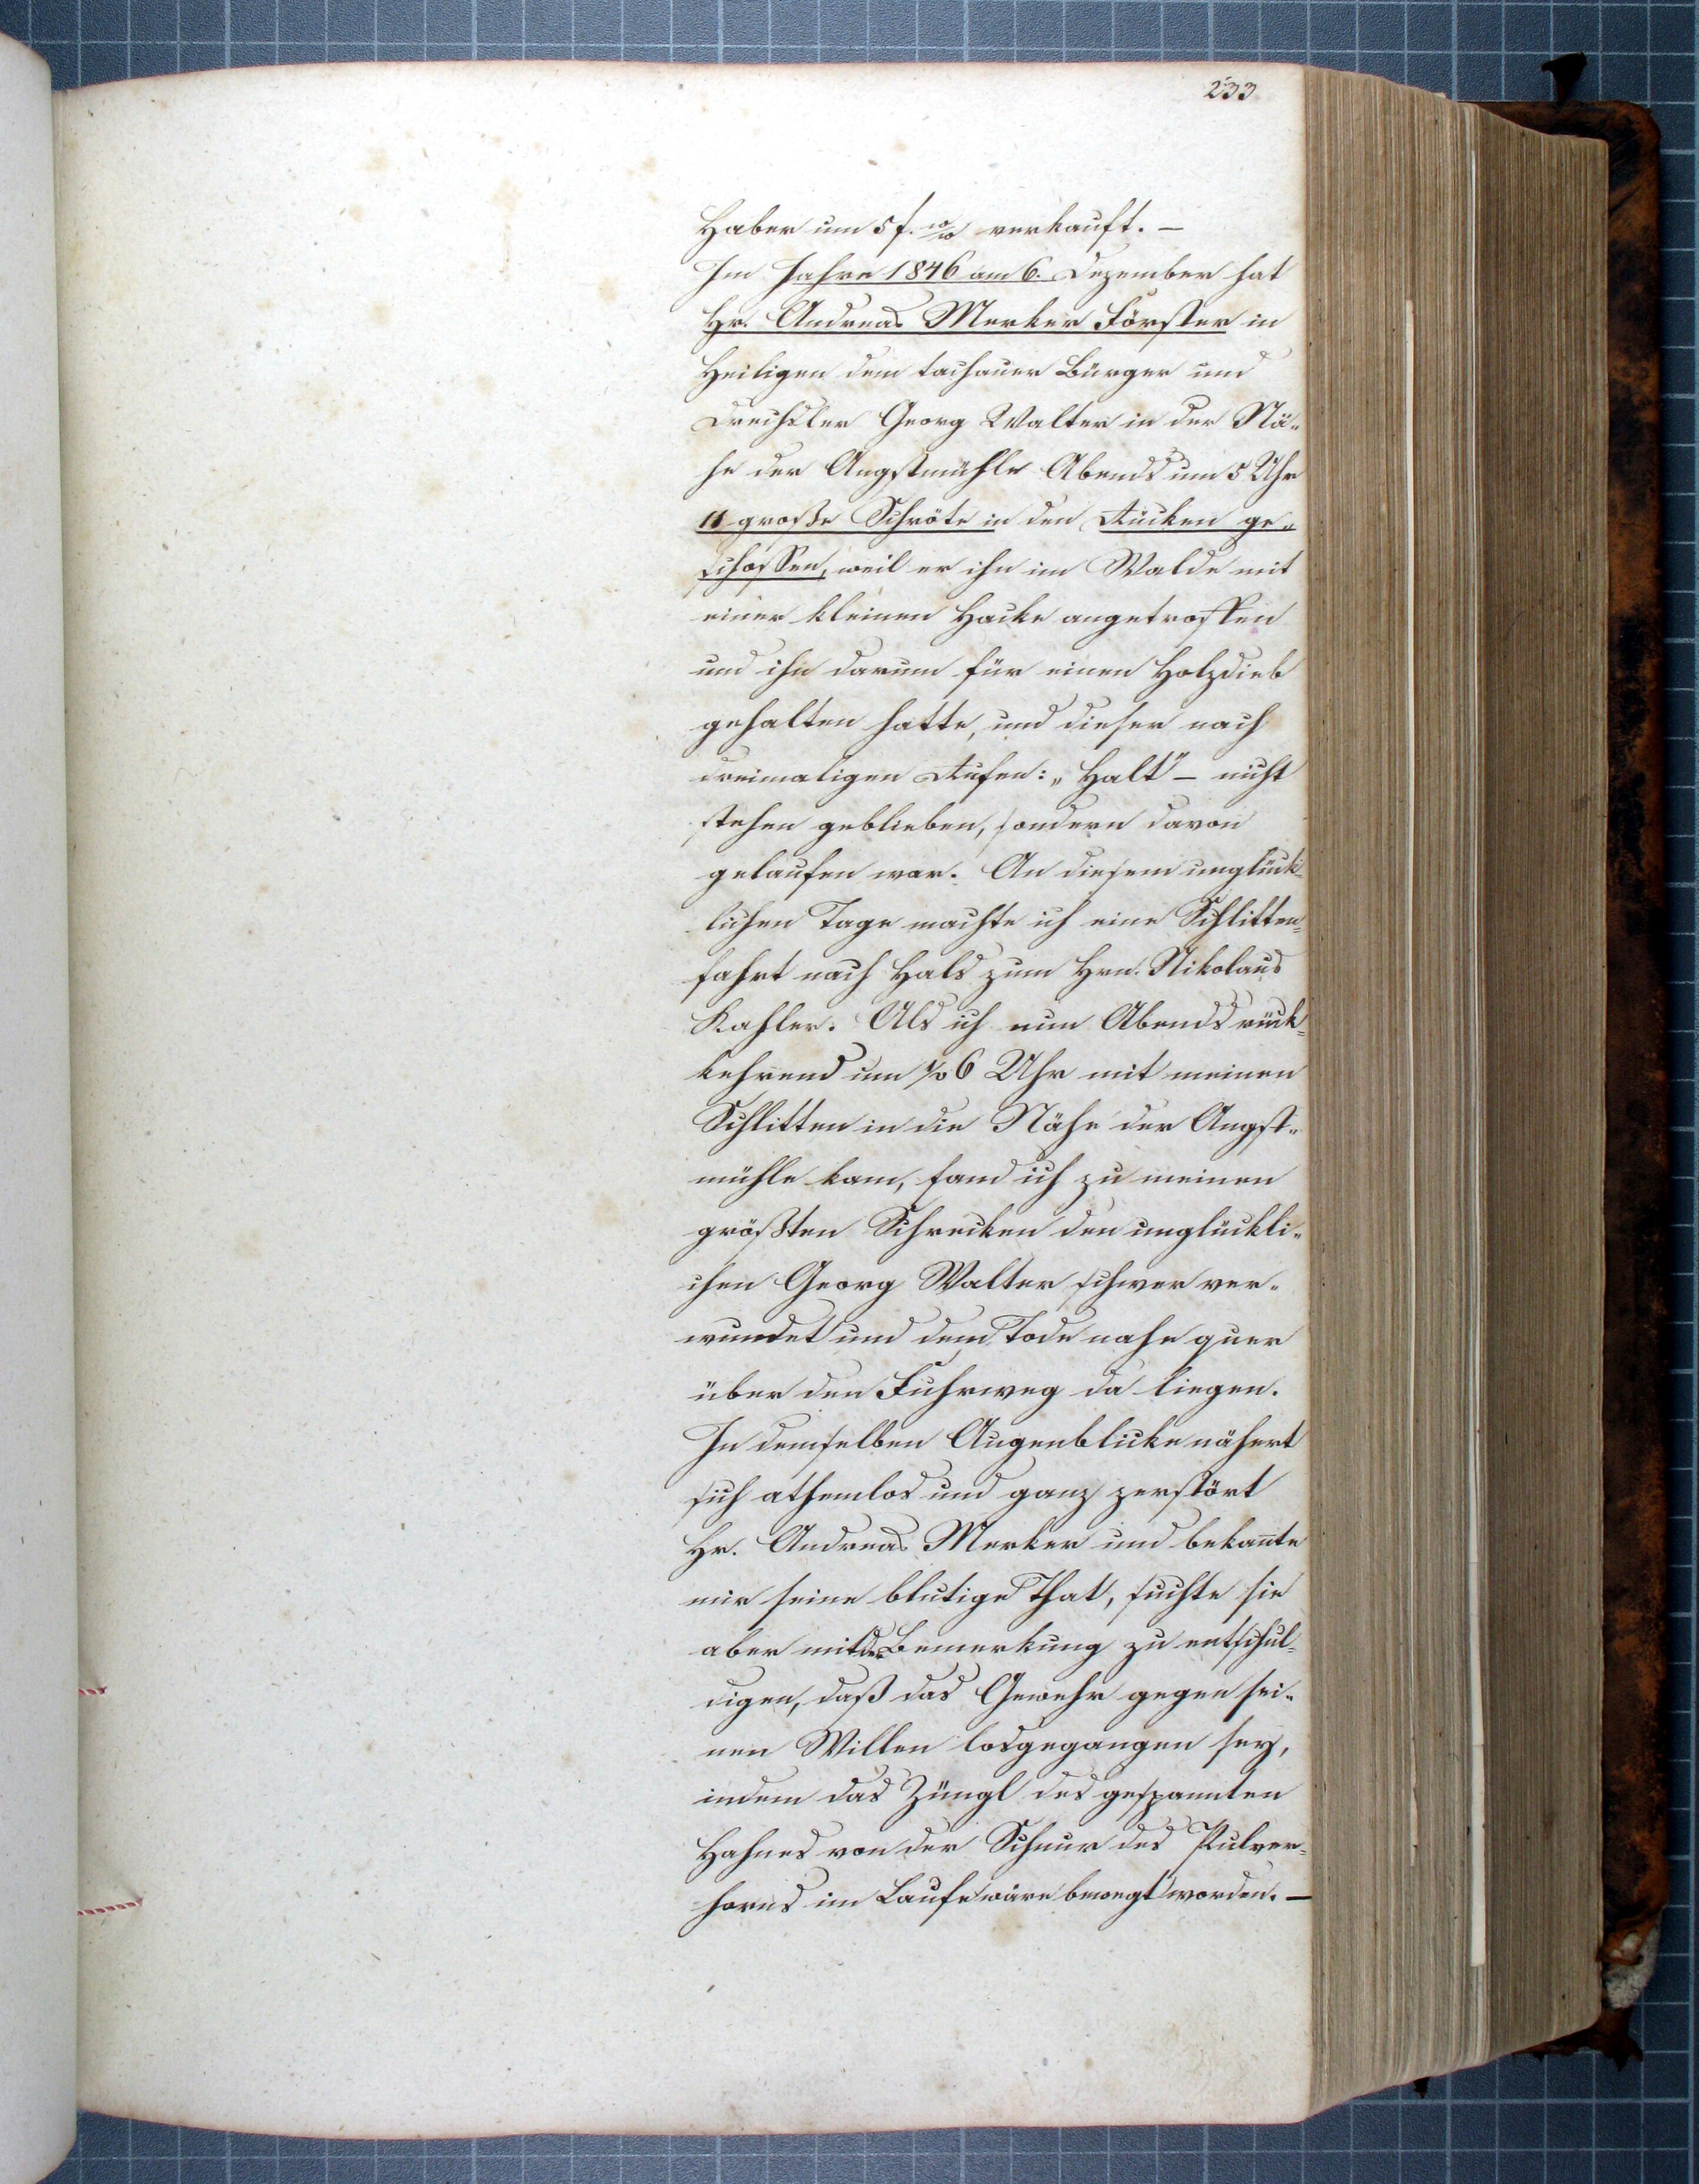 233
Haber um 5 f. verkauft. —
Im Jahre 1846 am 6. Dezember hat
Hr. Andreas Merker Förster in
Heiligen dem tachauer Bürger und
Drechsler Georg Walter in der Nä„
he der Angstmühle Abends um 5 Uhr
11 große Schröte in den Rücken ge„
schossen, weil er ihn im Walde mit
einer kleinen Hacke angetroffen
und ihn darum für einen Holzdieb
gehalten hatte, und dieser nach
dreimaligen Rufen: „Halt" — nicht
stehen geblieben, sondern davon
gelaufen war. An diesem unglück=
lichen Tage machte ich eine Schlitten=
fahrt nach Hals zum Hrn. Nikolaus
Kahler. Als ich nun Abends rück=
kehrend um 6 Uhr mit meinen
Schlitten in die Nähe der Angst„
mühle kam, fand ich zu meinen
größten Schrecken den unglückli„
chen Georg Walter schwer ver„
wundet und dem Tode nahe quer
über den Fuhrweg da liegen.
In demselben Augenblicke nähert
sich athemlos und ganz zerstört
Hr. Andreas Merker und bekan̄te
mir seine blutige That, suchte sie
aber mit der Bemerkung zu entschul=
digen, daß das Gewehr gegen sei„
nen Willen losgegangen sey,
indem das Züngl des gespannten
Hahnes von der Schnur des Pulver=
horns im Laufe wäre bewegt worden. —